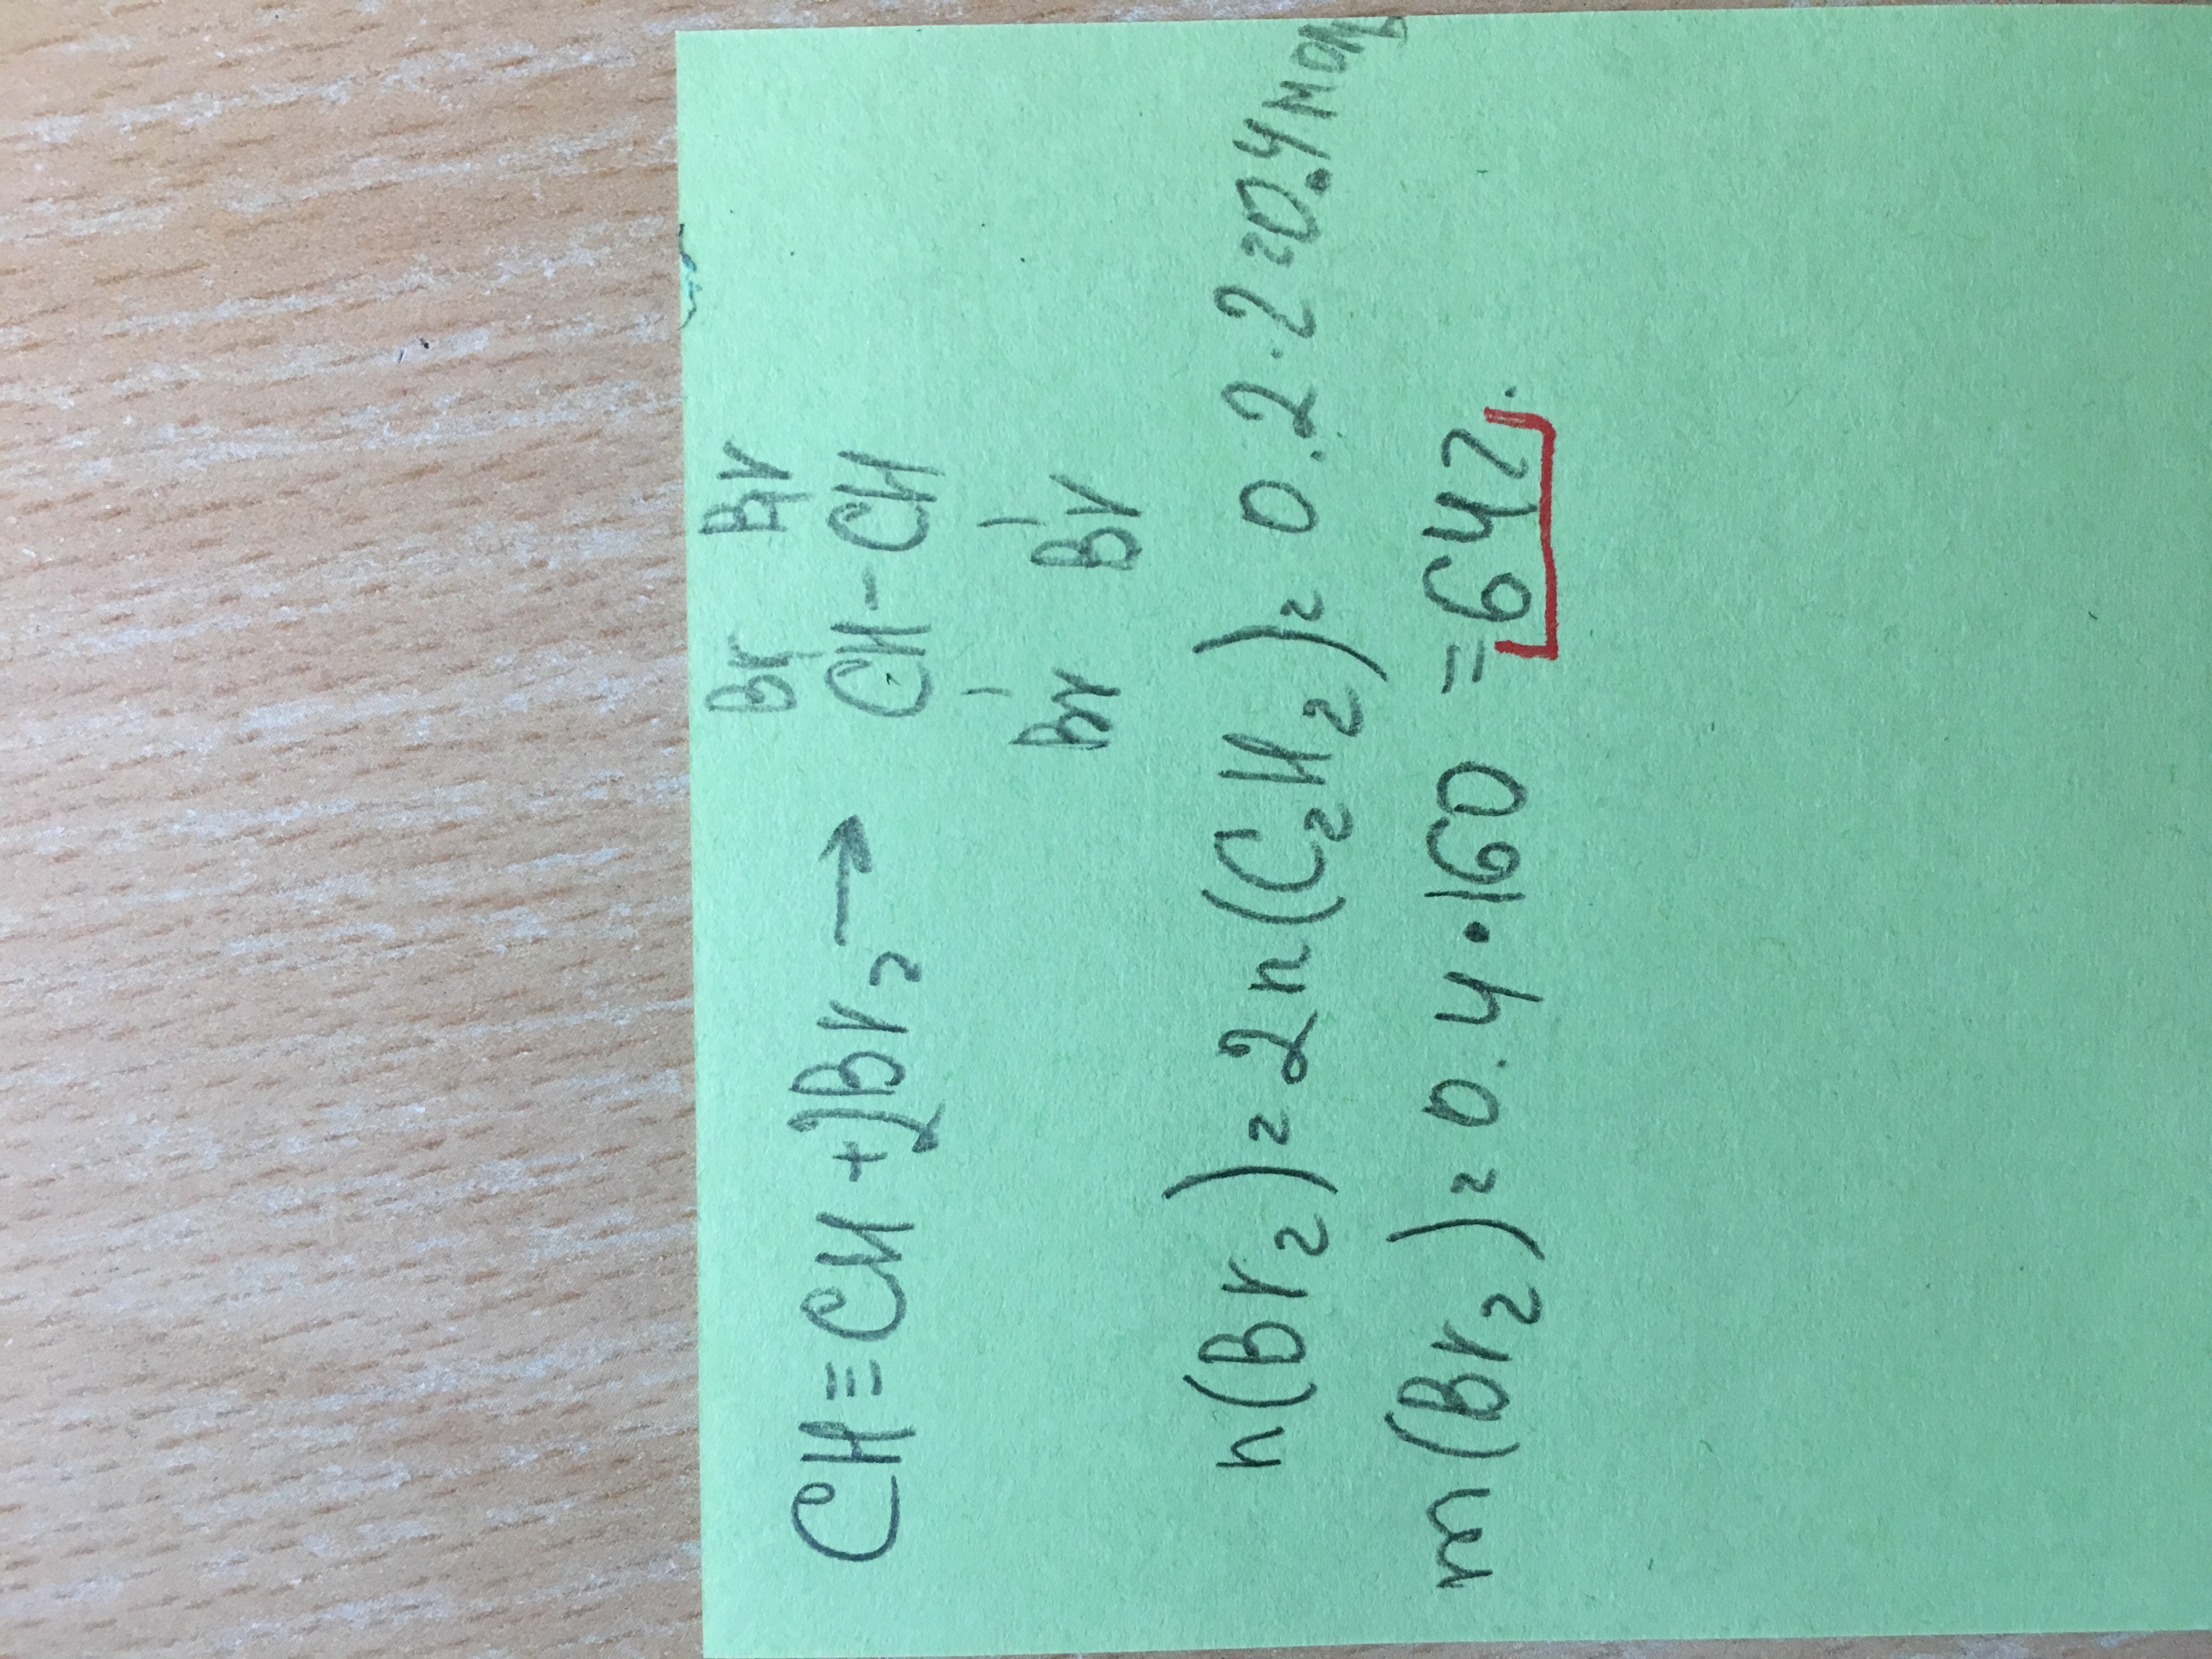 Br Br
CH≡CH + 2Br₂ → CH-CH
Br Br
n(Br₂) = 2n(C₂H₂) = 0.2·2 = 0.4 моль
m(Br₂) = 0.4·160 = 64г.